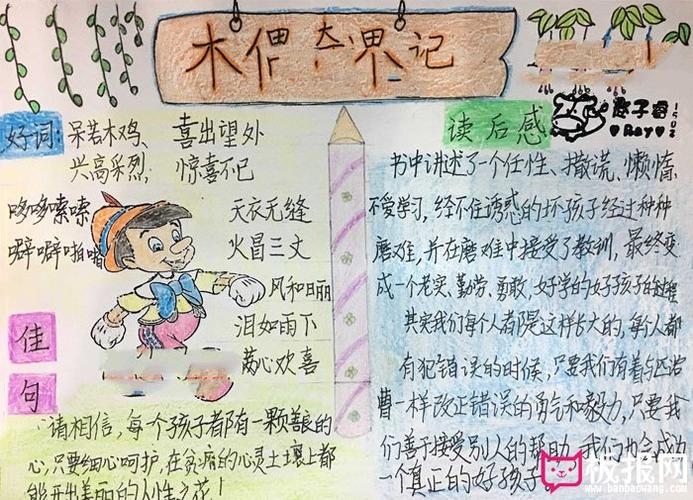 木偶奇遇记
好词: 呆若木鸡、 喜出望外
兴高采烈, 惊喜不已
哆哆嗦嗦 天衣无缝
噼噼啪啪 火冒三丈
风和日丽
泪如雨下
满心欢喜
佳句
请相信,每个孩子都有一颗善良的
心,只要细心呵护,在贫瘠的心灵土壤上都
能开出美丽的人性之花!
读后感
子睿
Ray
1502
书中讲述了一个任性、撒谎、懒惰、
不爱学习,经不住诱惑的坏孩子经过种种
磨难,并在磨难中接受了教训,最终变
成一个老实、勤劳、勇敢,好学的好孩子的
其实我们每个人都是这样长大的,每个人都
有犯错误的时候,只要我们有着与匹诺
曹一样改正错误的勇气和毅力,只要我
们善于接受别人的帮助,我们也会成为
一个真正的好孩子。
板报网
www.banbaowang.com